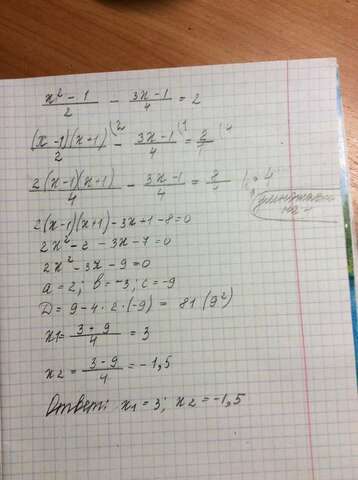 x² - 1/2 - 3x - 1/4 = 2
(x - 1)(x + 1)/2 (2 - 3x - 1/4 (1 = 2/1 (4
2(x - 1)(x + 1)/4 - 3x - 1/4 = 8/4 | · 4
2(x - 1)(x + 1) - 3x + 1 - 8 = 0
2x² - 2 - 3x - 7 = 0
2x² - 3x - 9 = 0
a = 2; b = -3; c = -9
D = 9 - 4 · 2 · (-9) = 81 (9²)
x1 = 3 + 9/4 = 3
x2 = 3 - 9/4 = -1,5
Ответ: x1 = 3; x2 = -1,5